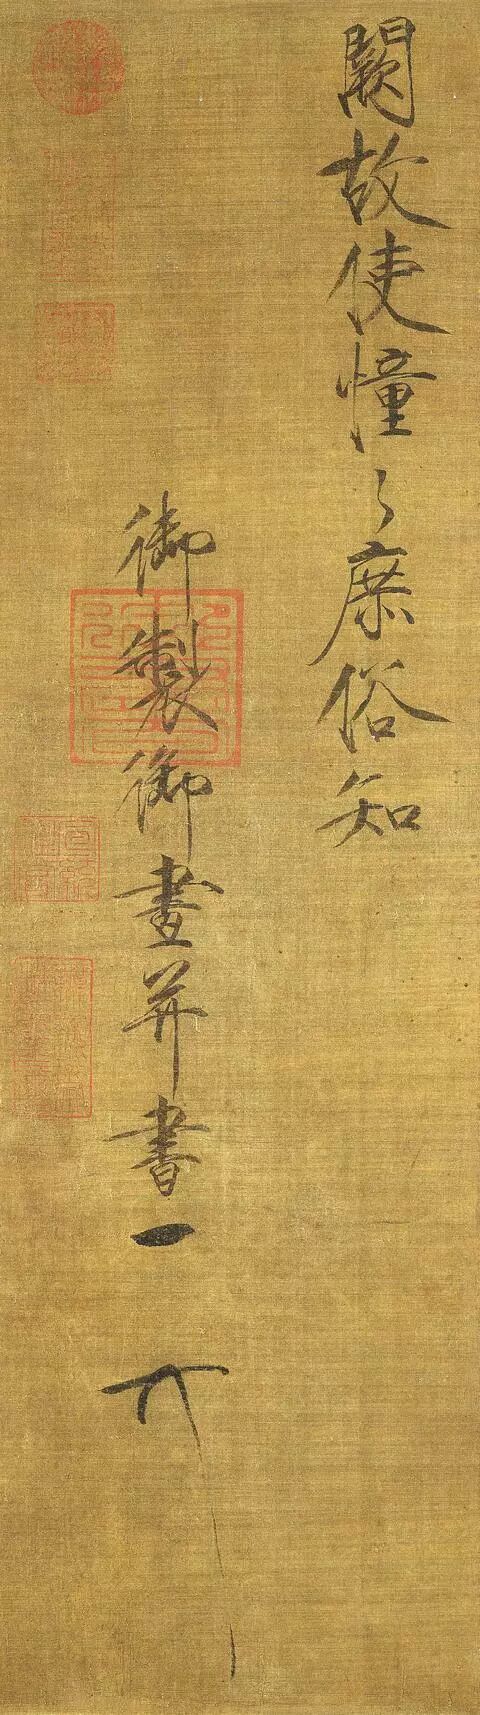 闕故使憧々庶俗知
御製御畫并書